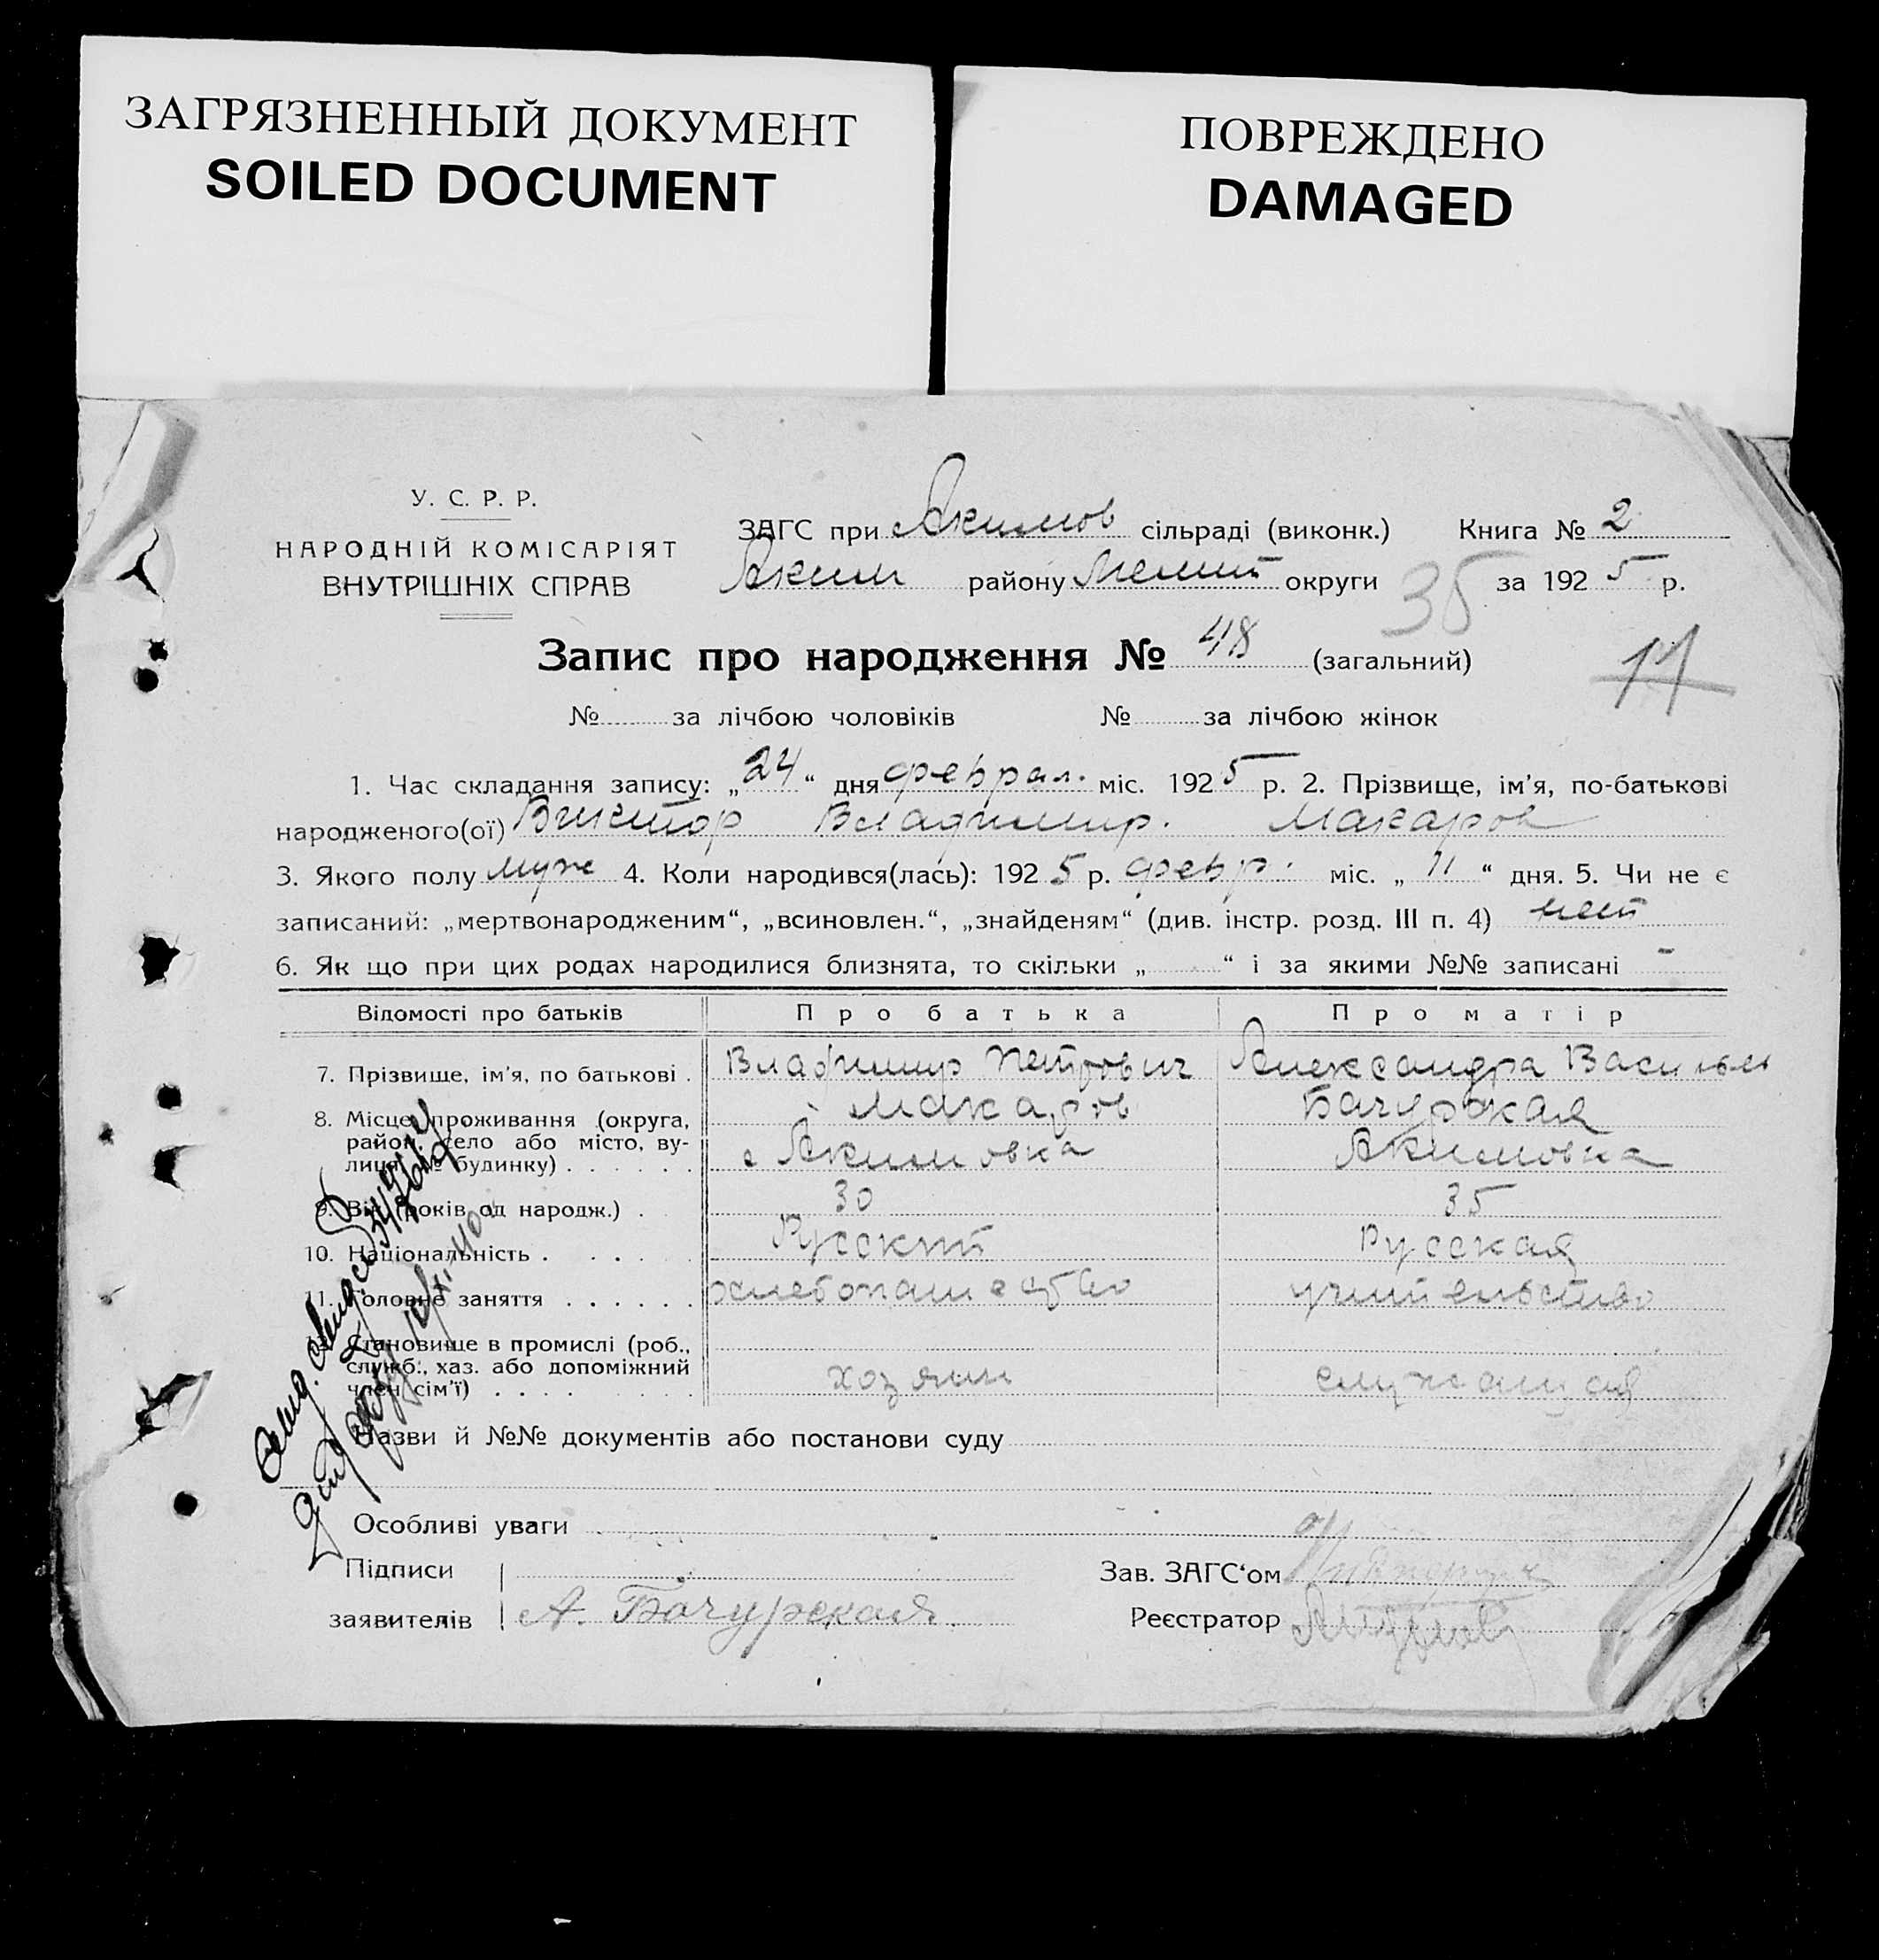 ЗАГРЯЗНЕННЫЙ ДОКУМЕНТ
SOILED DOCUMENT
ПОВРЕЖДЕНО
DAMAGED
У. С. Р. Р.
НАРОДНІЙ КОМІСАРІЯТ
ВНУТРІШНІХ СПРАВ
ЗАГС при Акимов сільраді (виконк.) Книга № 2
Аким району Мелит округи 35 за 1925 р.
Запис про народження № 48 (загальний)
№ за лічбою чоловіків № за лічбою жінок
1. Час складання запису: „24“ дня феврал. міс. 1925 р. 2. Прізвище, ім'я, по-батькові
народженого(ої) Виктор Владимир. Макаров
3. Якого полу муж 4. Коли народився(лась): 1925 р. февр. міс. „11“ дня. 5. Чи не є
записаний: „мертвонародженим“, „всиновлен.“, „знайденям“ (див. інстр. розд. III п. 4) нет
6. Як що при цих родах народилися близнята, то скільки „ “ і за якими №№ записані -
Відомості про батьків Про батька Про матір
7. Прізвище, ім'я, по батькові . Владимир Петрович Александра Василье
8. Місце проживання (округа, Макаров Бачурская
район, село або місто, ву-
лиця, № будинку) . . . . . . с Акимовка Акимовка
9. Вік (років од народж.) . 30 35
10. Національність . . . . . Русский Русская
11. Головне заняття . . . . . . хлебопашество учительство
12. Становище в промислі (роб.,
служб., хаз. або допоміжний
член сім'ї) . . . . . . . хозяин служащая
Назви й №№ документів або постанови суду
Особливі уваги
Підписи
заявителів А. Бачурская
Зав. ЗАГС'ом
Реєстратор